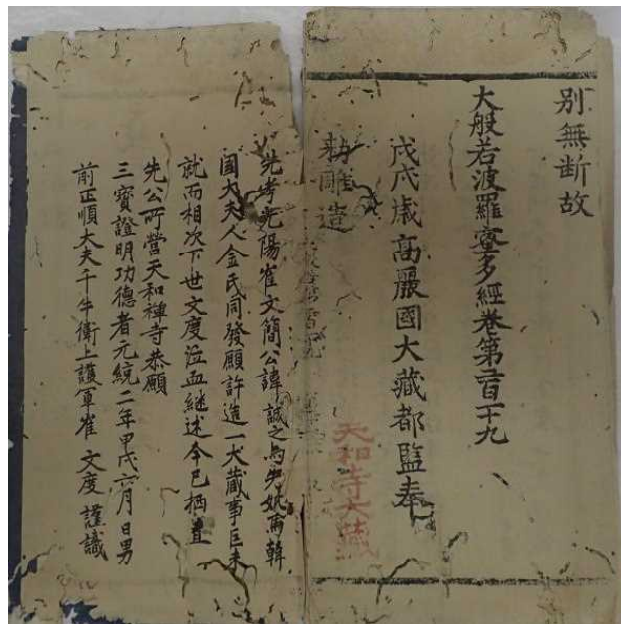 別無断故
大般若波羅蜜多經卷第二百一十九
戊戌歲高麗國大藏都監奉
勅雕造
天和寺大藏
先考光陽崔文簡公諱誠之為先妣韓
國大夫人金氏同發願許造一大藏事巨未
就而相次下世文度泣血継述今已栖置
先公所營天和禪寺恭願
三寶證明功德者元統二年甲戌六月日男
前正順大夫千牛衛上護軍崔 文度 謹識